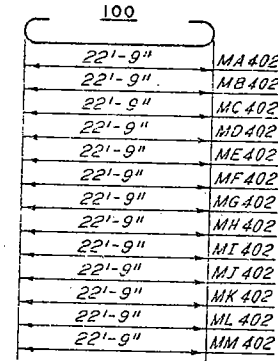 100
22'-9" MA402
22'-9" MB402
22'-9" MC402
22'-9" MD402
22'-9" ME402
22'-9" MF402
22'-9" MG402
22'-9" MH402
22'-9" MI402
22'-9" MJ402
22'-9" MK402
22'-9" ML402
22'-9" MM402